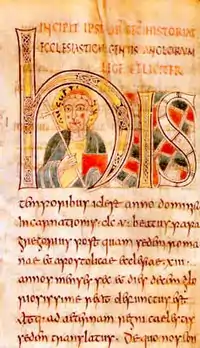 INCIPIT IPSIUS HISTORIAE
ECCLESIASTICAE GENTIS ANGLORUM
LEGE FELICITER
hIS
temporibus id est anno dominicae
incarnationis · dc v · beatus papa
gregorius post quam sedem roma
nae & apostolicae ecclesiae · xiii ·
annos menses sex & dies decem glo
riosissime rexit defunctus est
atq· ad aeternam regni caelestis
sedem translatus · De quo nos